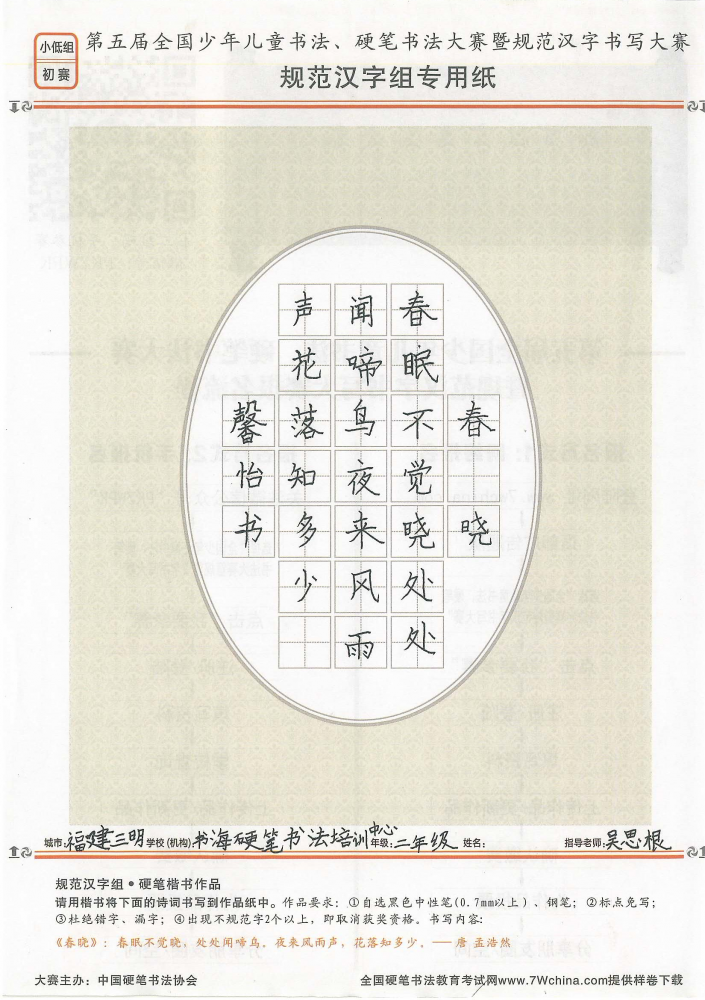 小低组
初赛
第五届全国少年儿童书法、硬笔书法大赛暨规范汉字书写大赛
规范汉字组专用纸
春晓
春眠不觉晓处处
闻啼鸟夜来风雨
声花落知多少
馨怡书
城市:福建三明 学校(机构):书海硬笔书法培训中心 年级:二年级 姓名: 指导老师:吴思根
规范汉字组•硬笔楷书作品
请用楷书将下面的诗词书写到作品纸中。作品要求：①自选黑色中性笔(0.7mm以上)、钢笔；②标点免写；
③杜绝错字、漏字；④出现不规范字2个以上，即取消获奖资格。书写内容:
《春晓》：春眠不觉晓，处处闻啼鸟。夜来风雨声，花落知多少。——唐 孟浩然
大赛主办：中国硬笔书法协会
全国硬笔书法教育考试网www.7Wchina.com提供样卷下载